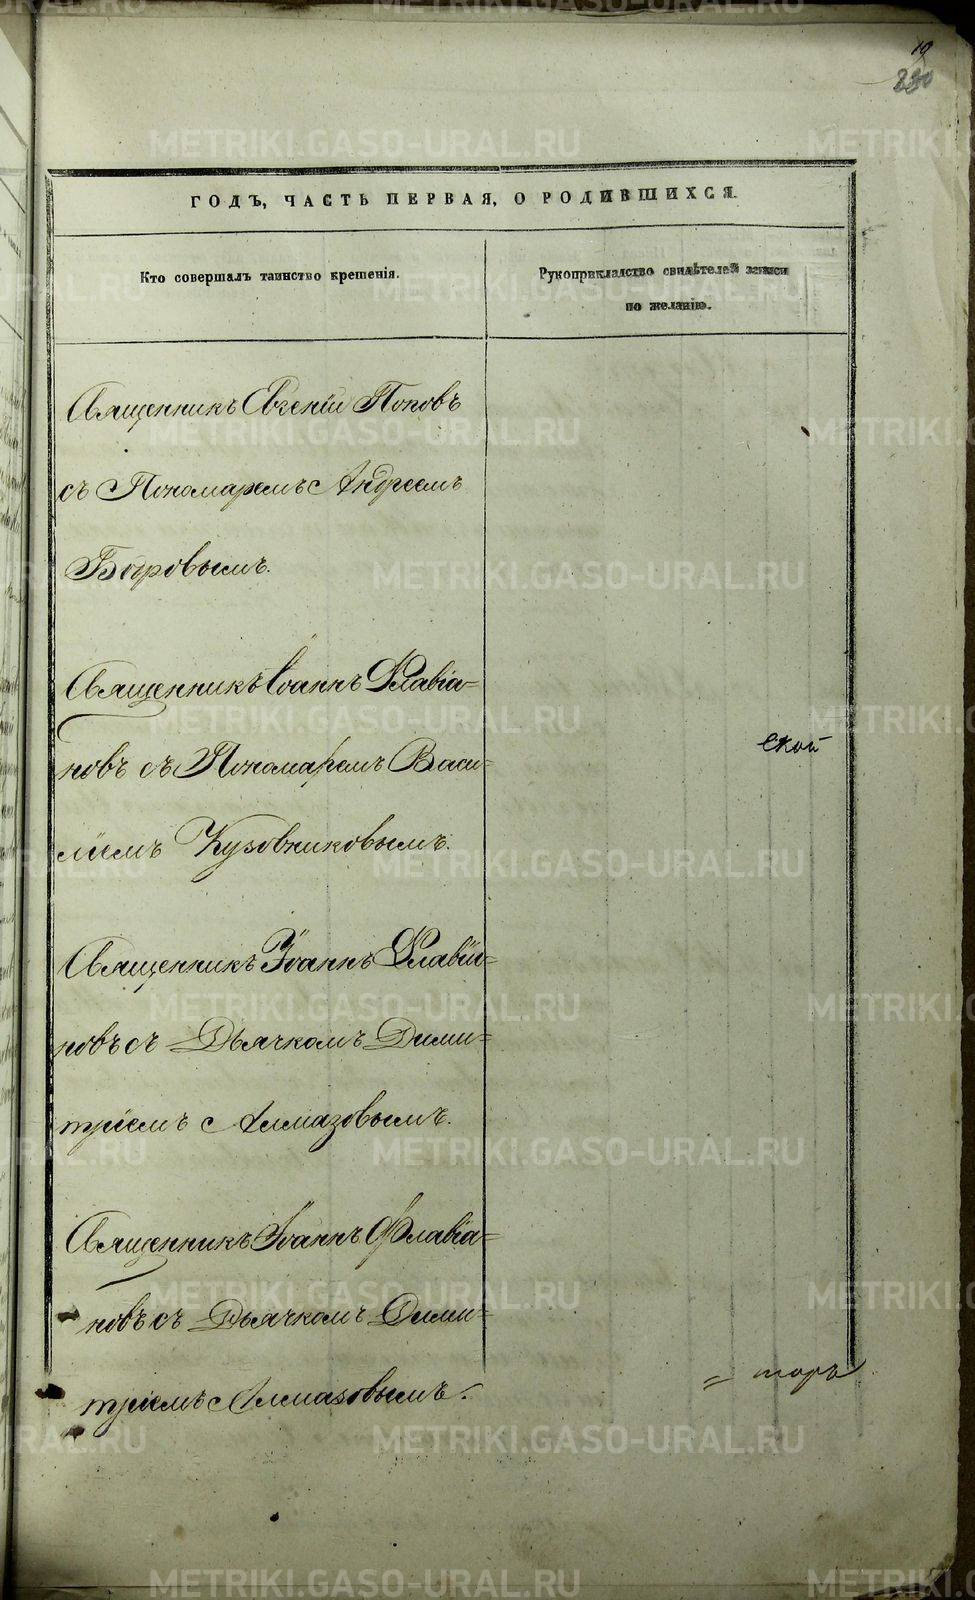 19
330
ГОДЪ, ЧАСТЬ ПЕРВАЯ, О РОДИВШИХСЯ.
Кто совершалъ таинство крещенія.
Рукоприкладство свидѣтелей записи
по желанію.
Священникъ Евгеній Поповъ
съ Пономаремъ Андреемъ
Боровымъ.
Священникъ Іоаннъ Флавіа=
новъ съ Пономаремъ Васи=
ліемъ Кузовниковымъ.
ской
Священникъ Іоаннъ Флавіа=
новъ съ Дьячкомъ Дими=
тріемъ Алмазовымъ.
Священникъ Іоаннъ Флавіа=
новъ съ Дьячкомъ Дими=
тріемъ Алмазовымъ.
= торъ
METRIKI.GASO-URAL.RU